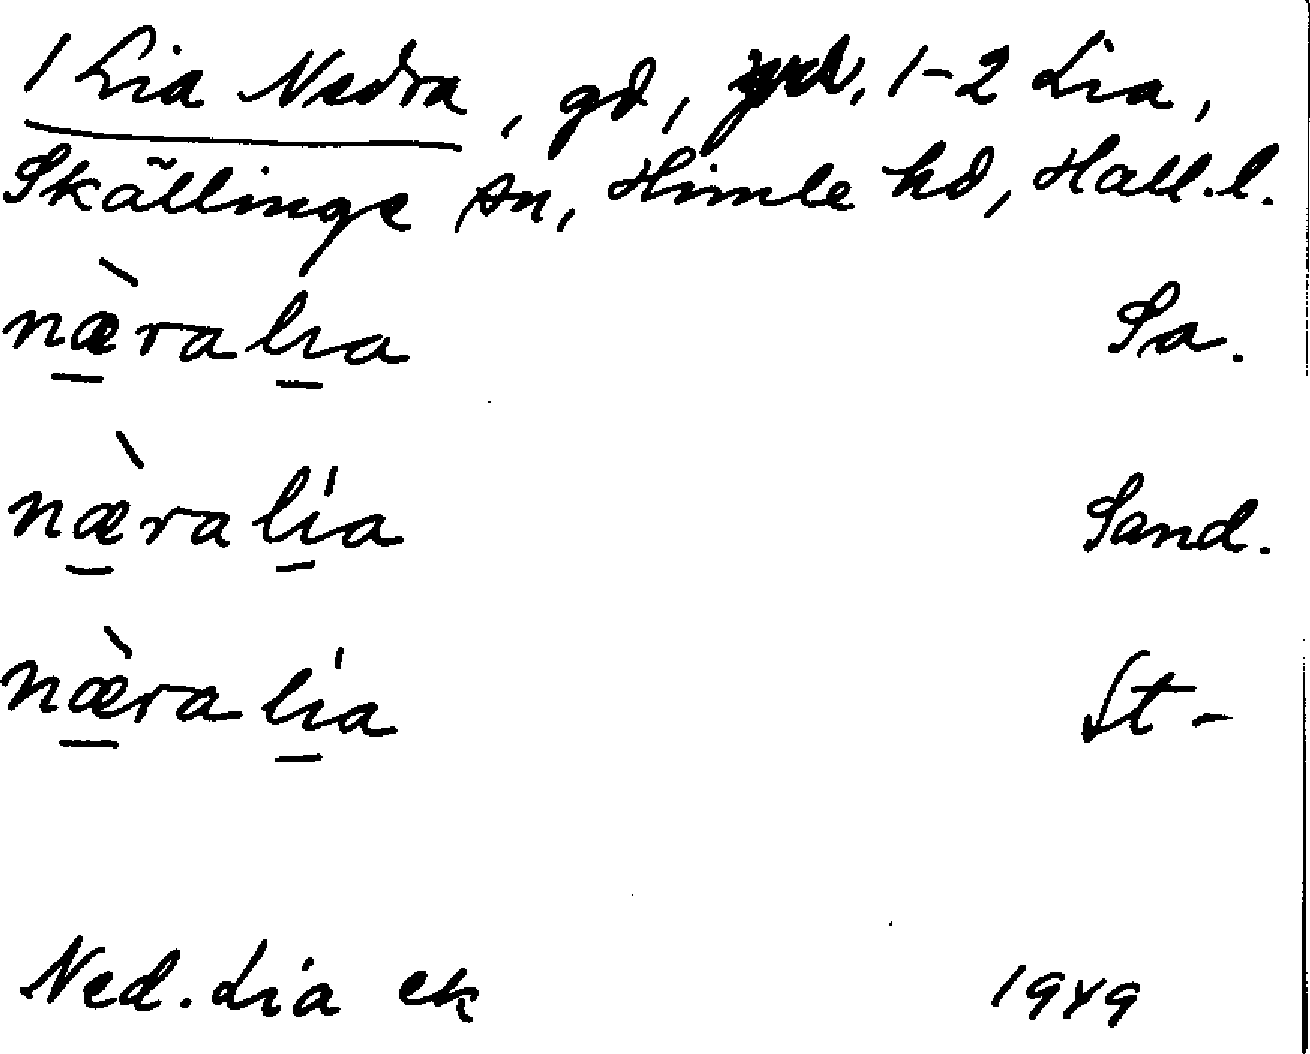 1 Lia Nedra, gd, jrd, 1-2 Lia,
Skällinge sn, Himle hd, Hall.l.
næ̀ralıa Sa.
næ̀ralı́a Sand.
næ̀ralı́a St-
Ned. Lia ek 1949